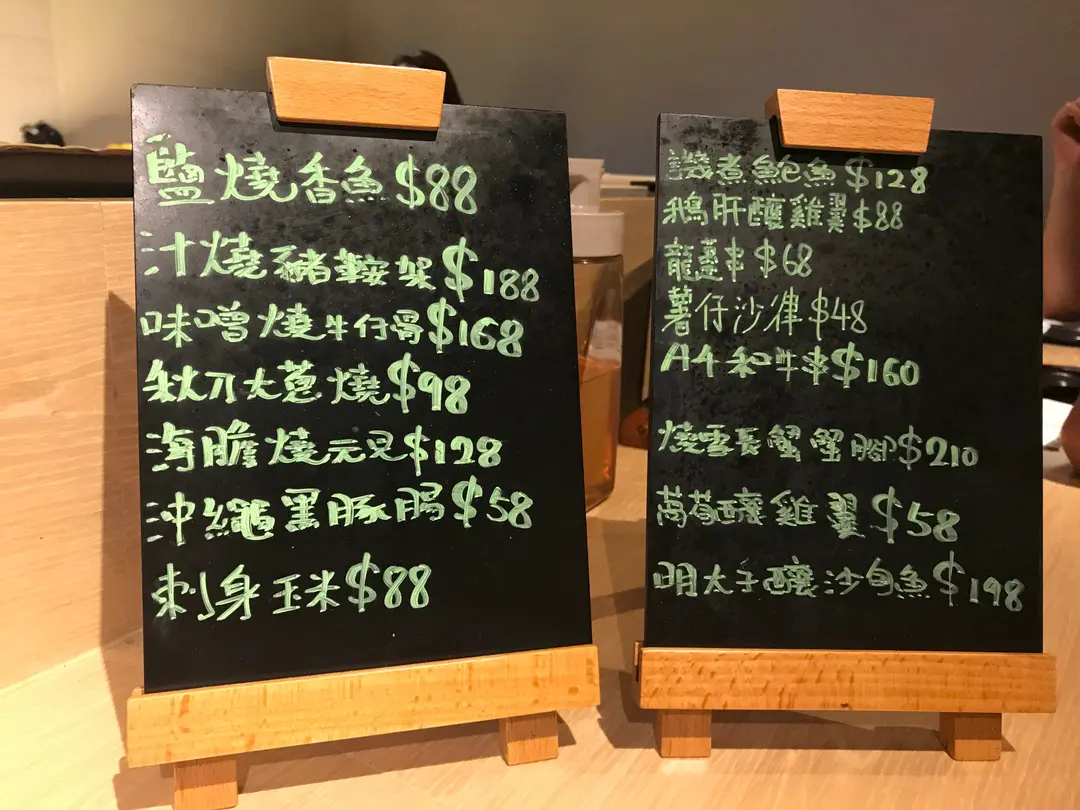 鹽燒香魚 $88
汁燒豬鞍架 $188
味噌燒牛仔骨 $168
秋刀大蔥燒 $98
海膽燒元貝 $128
沖繩黑豚腸 $58
刺身玉米 $88
煮鮑魚 $128
鵝肝釀雞翼 $88
龍躉串 $68
薯仔沙律 $48
A4和牛串 $160
燒雪長蟹蟹腳 $210
萵苣釀雞翼 $58
明太子釀沙甸魚 $198